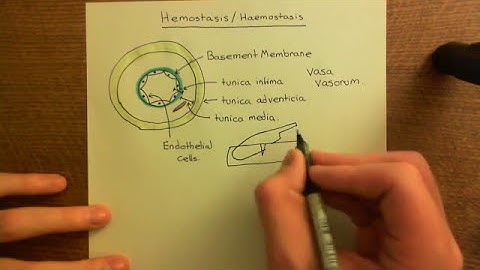 Hemostasis/Haemostasis
Basement Membrane
tunica intima
Vasa
Vasorum.
tunica adventicia
tunica media.
Endothelial
cells.